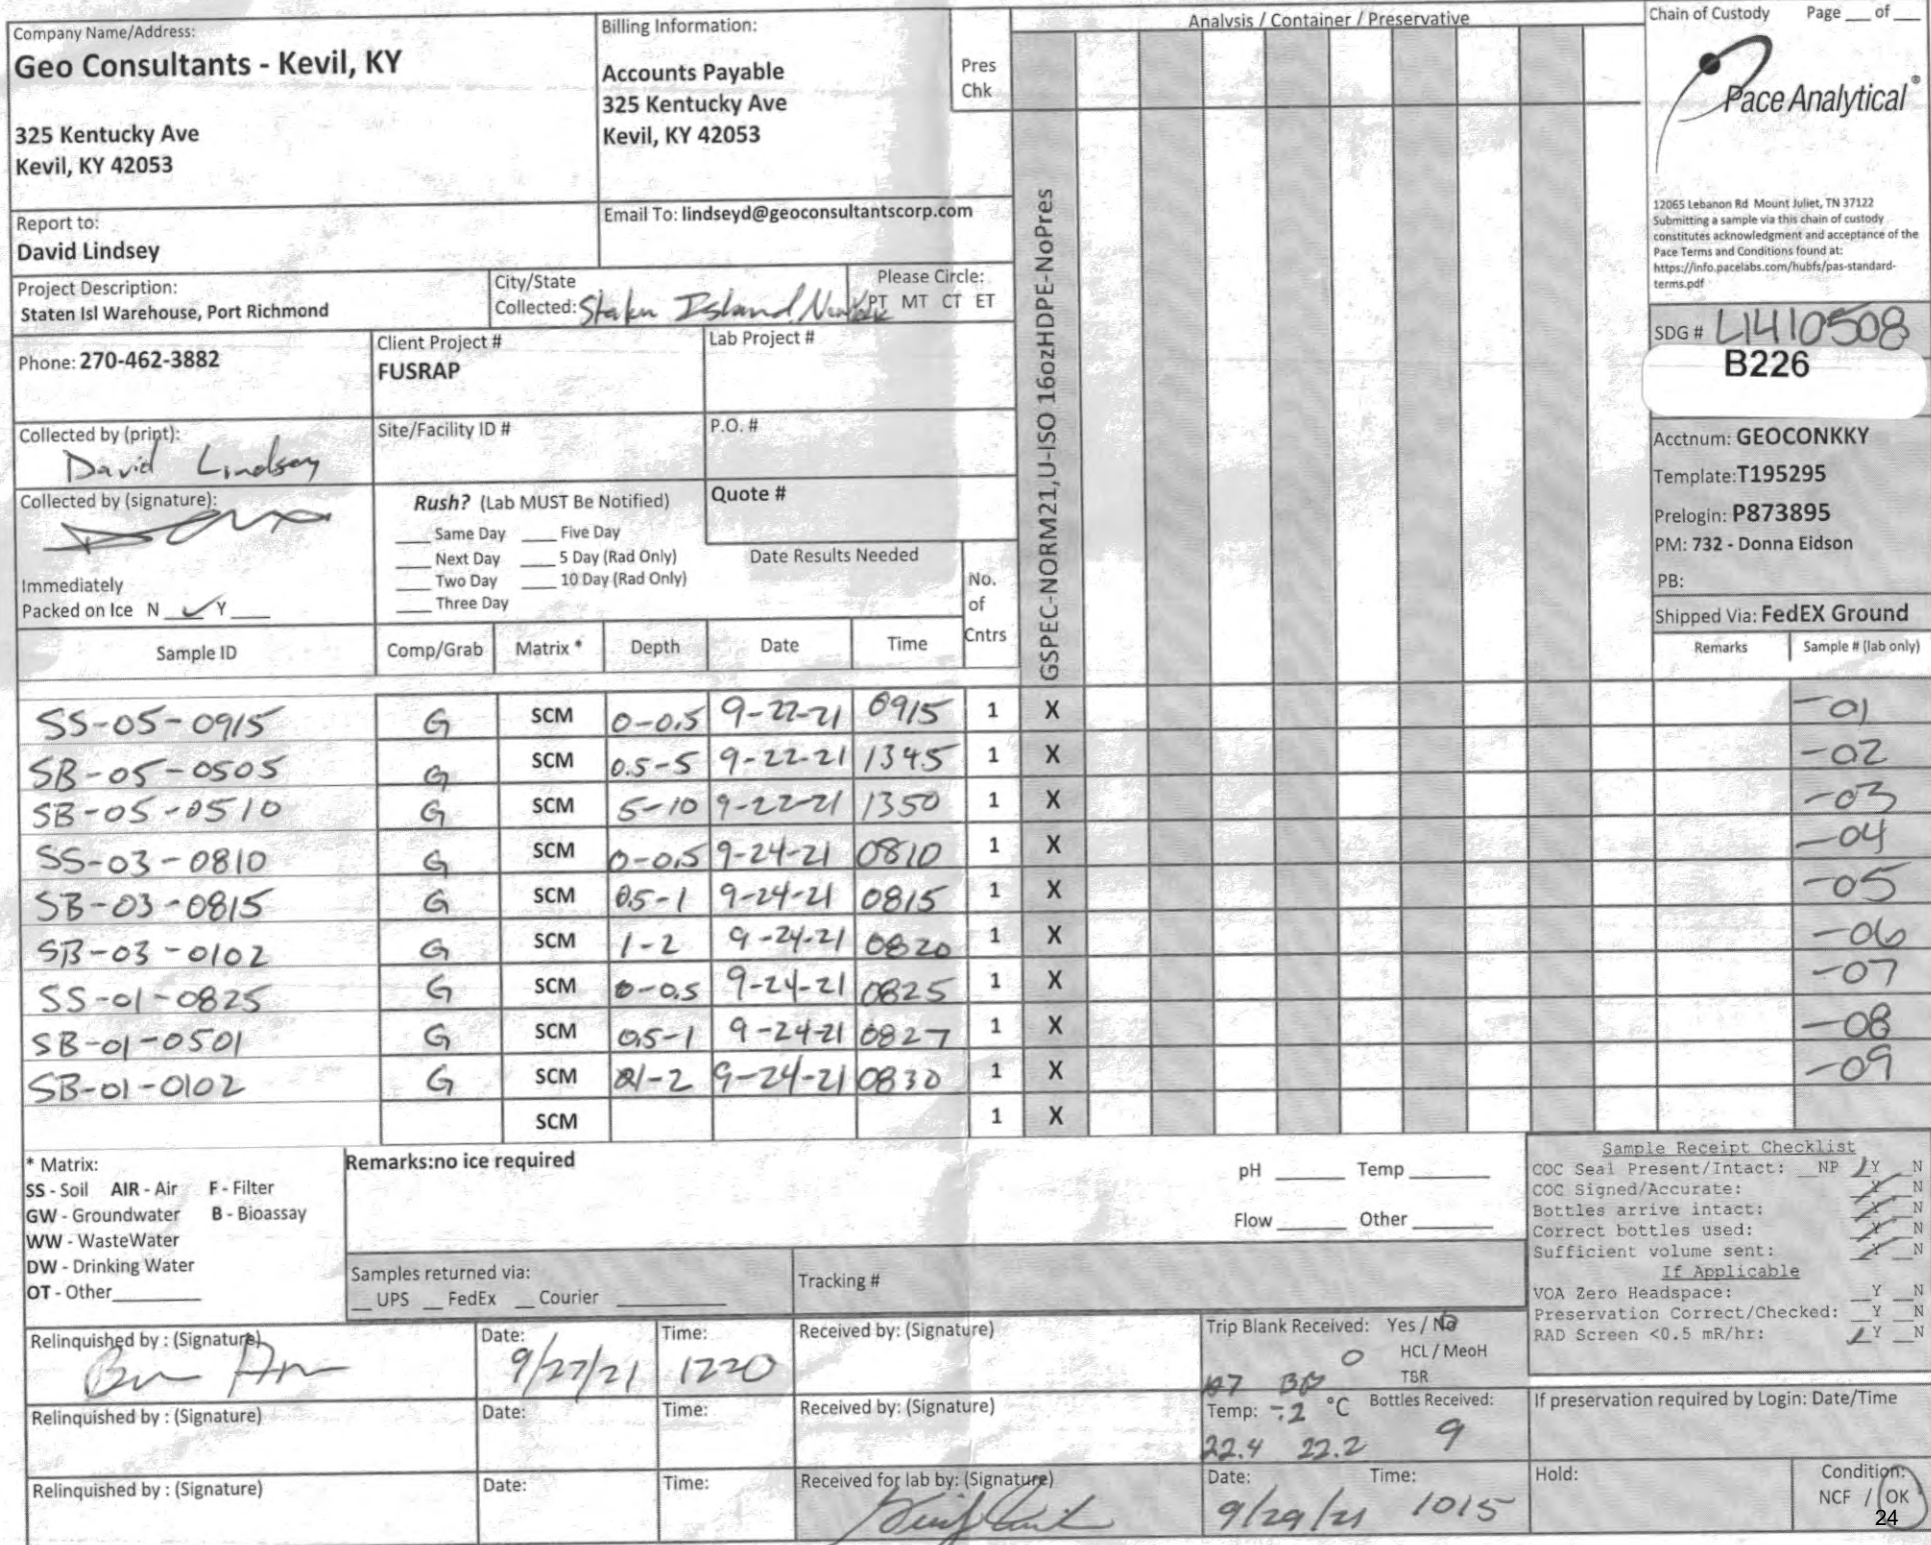 Company Name/Address:
Geo Consultants - Kevil, KY
325 Kentucky Ave
Kevil, KY 42053
Billing Information:
Accounts Payable
325 Kentucky Ave
Kevil, KY 42053
Pres
Chk
Analysis / Container / Preservative
GSPEC-NORM21,U-ISO 16ozHDPE-NoPres
Chain of Custody Page ___ of ___
Pace Analytical®
12065 Lebanon Rd Mount Juliet, TN 37122
Submitting a sample via this chain of custody
constitutes acknowledgment and acceptance of the
Pace Terms and Conditions found at:
https://info.pacelabs.com/hubfs/pas-standard-
terms.pdf
Report to:
David Lindsey
Email To: lindseyd@geoconsultantscorp.com
Project Description:
Staten Isl Warehouse, Port Richmond
City/State
Collected: Staten Island,
Please Circle:
PT MT CT ET
Phone: 270-462-3882
Client Project #
FUSRAP
Lab Project #
SDG # L1410508
B226
Collected by (print):
David Lindsey
Site/Facility ID #
P.O. #
Acctnum: GEOCONKKY
Template:T195295
Prelogin: P873895
PM: 732 - Donna Eidson
PB:
Collected by (signature):
Rush? (Lab MUST Be Notified)
___ Same Day ___ Five Day
___ Next Day ___ 5 Day (Rad Only)
___ Two Day ___ 10 Day (Rad Only)
___ Three Day
Quote #
Date Results Needed
Immediately
Packed on Ice N ✓ Y ___
No.
of
Cntrs
Shipped Via: FedEX Ground
Sample ID Comp/Grab Matrix * Depth Date Time Remarks Sample # (lab only)
SS-05-0915 G SCM 0-0.5 9-22-21 0915 1 X -01
SB-05-0505 G SCM 0.5-5 9-22-21 1345 1 X -02
SB-05-0510 G SCM 5-10 9-22-21 1350 1 X -03
SS-03-0810 G SCM 0-0.5 9-24-21 0810 1 X -04
SB-03-0815 G SCM 0.5-1 9-24-21 0815 1 X -05
SB-03-0102 G SCM 1-2 9-24-21 0820 1 X -06
SS-01-0825 G SCM 0-0.5 9-24-21 0825 1 X -07
SB-01-0501 G SCM 0.5-1 9-24-21 0827 1 X -08
SB-01-0102 G SCM 1-2 9-24-21 0830 1 X -09
SCM 1 X
* Matrix:
SS - Soil AIR - Air F - Filter
GW - Groundwater B - Bioassay
WW - WasteWater
DW - Drinking Water
OT - Other
Remarks:no ice required
pH ___ Temp ___
Flow ___ Other ___
Samples returned via:
__ UPS __ FedEx __ Courier
Tracking #
Sample Receipt Checklist
COC Seal Present/Intact: __ NP ✓ Y __ N
COC Signed/Accurate: ✓ Y __ N
Bottles arrive intact: ✓ Y __ N
Correct bottles used: ✓ Y __ N
Sufficient volume sent: ✓ Y __ N
If Applicable
VOA Zero Headspace: __ Y __ N
Preservation Correct/Checked: __ Y __ N
RAD Screen <0.5 mR/hr: ✓ Y __ N
Relinquished by : (Signature)
Date:
9/27/21
Time:
1220
Received by: (Signature)
Trip Blank Received: Yes / No
0 HCL / MeoH
TBR
Relinquished by : (Signature)
Date:
Time:
Received by: (Signature)
Temp: -.2 °C Bottles Received:
22.4 22.2 9
If preservation required by Login: Date/Time
Relinquished by : (Signature)
Date:
Time:
Received for lab by: (Signature)
Date:
9/29/21
Time:
1015
Hold:
Condition:
NCF / OK
24